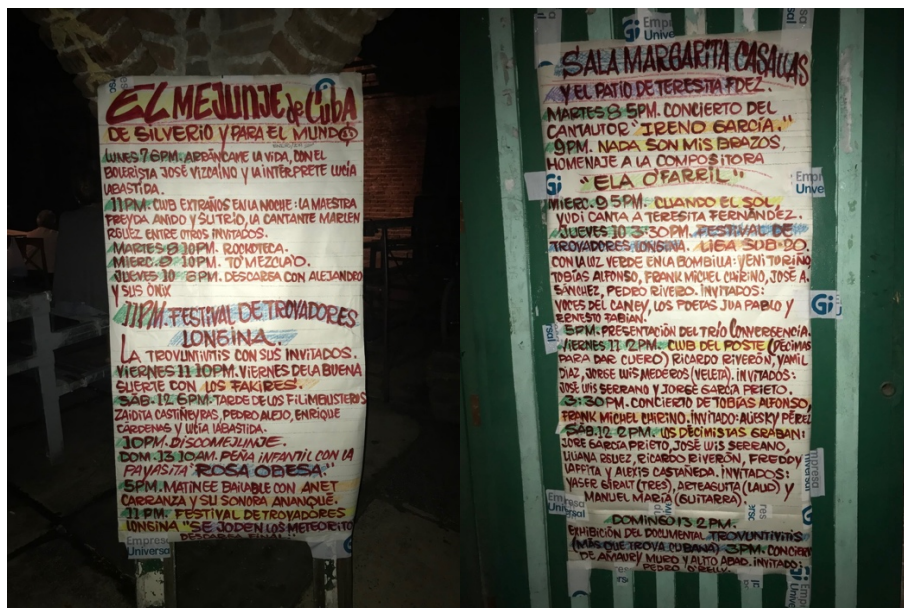 EL MEJUNJE de CubA
DE SILVERIO Y PARA EL MUNDO
LUNES 7 6PM. ARRÁNCAME LA VIDA, CON EL
BOLERISTA JOSÉ VIZCAÍNO Y LA INTÉRPRETE LUCÍA
LABASTIDA.
11PM. CLUB EXTRAÑOS EN LA NOCHE: LA MAESTRA
FREYDA ANIDO Y SU TRÍO, LA CANTANTE MARLEN
RGUEZ ENTRE OTROS INVITADOS.
MARTES 8 10PM. ROCKOTECA.
MIERC. 9 10PM. TO' MEZCLA'O.
JUEVES 10 6PM. DESCARGA CON ALEJANDRO
Y SUS ÓNIX
11PM. FESTIVAL DE TROVADORES
LONGINA.
LA TROVUNTIVITIS CON SUS INVITADOS.
VIERNES 11 10PM. VIERNES DE LA BUENA
SUERTE CON LOS FAKIRES.
SÁB. 12 6PM. TARDE DE LOS FILIMBUSTEROS
ZAIDITA CASTIÑEYRAS, PEDRO ALEJO, ENRIQUE
CÁRDENAS Y LUCÍA LABASTIDA.
10PM. DISCOMEJUNJE.
DOM. 13 10AM. PEÑA INFANTIL CON LA
PAYASITA "ROSA OBESA."
5PM. MATINEE BAILABLE CON ANET
CARRANZA Y SU SONORA ANANQUÉ.
11 PM. FESTIVAL DE TROVADORES
LONGINA "SE JODEN LOS METEORITO
DESCARGA FINAL
Empresa
Universal
Gi Empre
Univers
SALA MARGARITA CASALLAS
Y EL PATIO DE TERESITA FDEZ.
MARTES 8 5PM. CONCIERTO DEL
CANTAUTOR "IRENO GARCÍA."
9PM. NADA SON MIS BRAZOS,
HOMENAJE A LA COMPOSITORA
"ELA O'FARRIL"
MIERC. 9 5PM. CUANDO EL SOL,
YUDI CANTA A TERESITA FERNÁNDEZ.
JUEVES 10 3:30PM. FESTIVAL DE
TROVADORES LONGINA. LIGA SUB-20.
CON LA LUZ VERDE EN LA BOMBILLA: YENI TORIÑO,
TOBÍAS ALFONSO, FRANK MICHEL CHIRINO, JOSÉ A.
SÁNCHEZ, PEDRO RIVERO. INVITADOS:
VOCES DEL CANEY, LOS POETAS JUA PABLO Y
ERNESTO FABIAN.
5PM. PRESENTACIÓN DEL TRÍO CONVERGENCIA.
VIERNES 11 2PM. CLUB DEL POSTE (DÉCIMAS
PARA DAR CUERO) RICARDO RIVERÓN, YAMIL
DÍAZ, JORGE LUIS MEDEROS (VELETA). INVITADOS:
JOSÉ LUIS SERRANO Y JORGE GARCÍA PRIETO.
3:30PM. CONCIERTO DE TOBÍAS ALFONSO,
FRANK MICHEL CHIRINO. INVITADO: ALIESKY PÉREZ
SÁB. 12 2PM. LOS DECIMISTAS GRABAN:
JORGE GARCÍA PRIETO, JOSÉ LUIS SERRANO,
LILIANA RGUEZ, RICARDO RIVERÓN, FREDDY
LAFFITA Y ALEXIS CASTAÑEDA. INVITADOS:
YASER GIRALT (TRES), ARTEAGUITA (LAUD) Y
MANUEL MARÍA (GUITARRA).
DOMINGO 13 2PM.
EXHIBICIÓN DEL DOCUMENTAL TROVUNTIVITIS
(MÁS QUE TROVA CUBANA) 3PM. CONCIER
DE AMAURY MURO Y ALTO ABAD. INVITADO:
PEDRO O'REILLY.